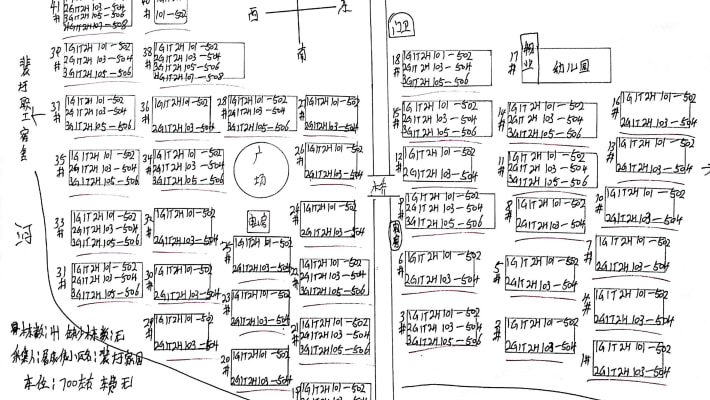 41#
2G1T2H 103-504
3G1T2H 105-506
4G1T2H 107-508
40#
101-502
西
东
南
门卫
39#
1G1T2H 101-502
2G1T2H 103-504
3G1T2H 105-506
38#
1G1T2H 101-502
2G1T2H 103-504
3G1T2H 105-506
4G1T2H 107-508
18#
1G1T2H 101-502
2G1T2H 103-504
3G1T2H 105-506
17#
物业
幼儿园
裴圩职工宿舍
37#
1G1T2H 101-502
2G1T2H 103-504
3G1T2H 105-506
36#
1G1T2H 101-502
2G1T2H 103-504
28#
1G1T2H 101-502
2G1T2H 103-504
3G1T2H 105-506
27#
1G1T2H 101-502
2G1T2H 103-504
15#
1G1T2H 101-502
2G1T2H 103-504
3G1T2H 105-506
14#
1G1T2H 101-502
2G1T2H 103-504
3G1T2H 105-506
16#
1G1T2H 101-502
2G1T2H 103-504
35#
1G1T2H 101-502
2G1T2H 103-504
3G1T2H 105-506
34#
1G1T2H 101-502
2G1T2H 103-504
3G1T2H 105-506
广场
26#
1G1T2H 101-502
2G1T2H 103-504
桥
12#
1G1T2H 101-502
2G1T2H 103-504
11#
1G1T2H 101-502
2G1T2H 103-504
3G1T2H 105-506
13#
1G1T2H 101-502
2G1T2H 103-504
河
33#
1G1T2H 101-502
2G1T2H 103-504
3G1T2H 105-506
32#
1G1T2H 101-502
2G1T2H 103-504
电房
24#
1G1T2H 101-502
2G1T2H 103-504
9#
1G1T2H 101-502
2G1T2H 103-504
3G1T2H 105-506
8#
1G1T2H 101-502
2G1T2H 103-504
10#
1G1T2H 101-502
2G1T2H 103-504
31#
1G1T2H 101-502
2G1T2H 103-504
3G1T2H 105-506
30#
1G1T2H 101-502
2G1T2H 103-504
25#
1G1T2H 101-502
2G1T2H 103-504
22#
1G1T2H 101-502
2G1T2H 103-504
3G1T2H 105-506
6#
1G1T2H 101-502
2G1T2H 103-504
5#
1G1T2H 101-502
2G1T2H 103-504
7#
1G1T2H 101-502
2G1T2H 103-504
29#
1G1T2H 101-502
2G1T2H 103-504
23#
1G1T2H 101-502
2G1T2H 103-504
21#
1G1T2H 101-502
2G1T2H 103-504
3G1T2H 105-506
3#
1G1T2H 101-502
2G1T2H 103-504
3G1T2H 105-506
2#
1G1T2H 101-502
2G1T2H 103-504
4#
1G1T2H 101-502
2G1T2H 103-504
20#
1G1T2H 101-502
2G1T2H 103-504
19#
1G1T2H 101-502
1#
1G1T2H 101-502
2G1T2H 103-504
栋数:41 缺少栋数:无
小区名:裴圩家园
车位:700左右